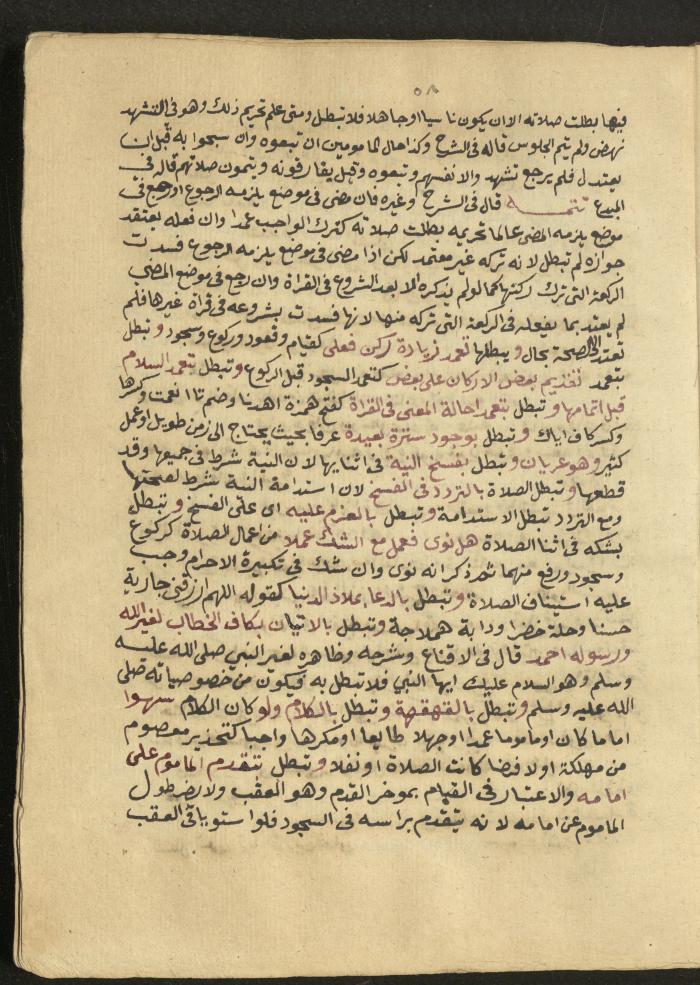 ٥٨
فيها بطلت صلاته الا ان يكون ناسيا او جاهلا فلا تبطل ومتى علم تحريم ذلك وهو في التشهد
نهض ولم يتم الجلوس قاله في الشرح وكذا حال المامومين ان تبعوه وان سبحوا به قبل ان
يعتدل فلم يرجع تشهد والانفسهم وتبعوه وقيل يفارقونه ويتمون صلاتهم قاله في
المبدع تتمـــه قال في الشرح وغيره فان مضى في موضع يلزمه الرجوع او رجع في
موضع يلزمه المضي عالما تحريمه بطلت صلاته كترك الواجب عمدا وان فعله يعتقد
جوازه لم تبطل لانه تركه غير معتمد لكن اذا مضى في موضع يلزمه الرجوع فسدت
الركعة التي ترك ركنها كما لو لم يذكره الا بعد الشروع في القراة وان رجع في موضع المضي
لم يعتد بما يفعله في الركعة التي تركه منها لانها فسدت بشروعه في قراة غيرها فلم
تعد الى الصحة بحال ويبطلها تعمد زيادة ركن فعلي كقيام وقعود وركوع وسجود وتبطل
بتعمد تقديم بعض الاركان على بعض كتعمد السجود قبل الركوع وتبطل بتعمد السلام
قبل اتمامها وتبطل بتعمد احالة المعنى في القراة كفتح همزة اهدنا وضم تا انعمت وكسرها
وكسر كاف اياك وتبطل بوجود سترة بعيدة عرفا بحيث يحتاج الى زمن طويل او عمل
كثير وهو عريان وتبطل بفسخ النية في اثنايها لان النية شرط في جميعها وقد
قطعها وتبطل الصلاة بالتردد في الفسخ لان استدامة النية شرط لصحتها
ومع التردد تبطل الاستدامة وتبطل بالعزم عليه اي على الفسخ وتبطل
بشكه في اثنا الصلاة هل نوى فعمل مع الشك عملا من اعمال الصلاة كركوع
وسجود ورفع منهما ثم ذكر انه نوى وان شك في تكبيرة الاحرام وجب
عليه استيناف الصلاة وتبطل بالدعا بملاذ الدنيا كقوله اللهم ارزقني جارية
حسنا وحلة خضرا ودابة هملاجة وتبطل بالاتيان بكاف الخطاب لغير الله
ورسوله احمد قال في الاقناع وشرحه وظاهره لغير النبي صلى الله عليه
وسلم وهو السلام عليك ايها النبي فلا تبطل به فيكون من خصوصياته صلى
الله عليه وسلم وتبطل بالقهقهة وتبطل بالكلام ولو كان الكلام سهوا
اماما كان او ماموما عمدا او جهلا طايعا او مكرها واجبا كتحذير معصوم
من مهلكة او لا فرضا كانت الصلاة او نفلا وتبطل بتقدم الماموم على
امامه والاعتبار في القيام بموخر القدم وهو العقب ولا يضر طول
الماموم عن امامه لانه يتقدم براسه في السجود فلو استويا في العقب